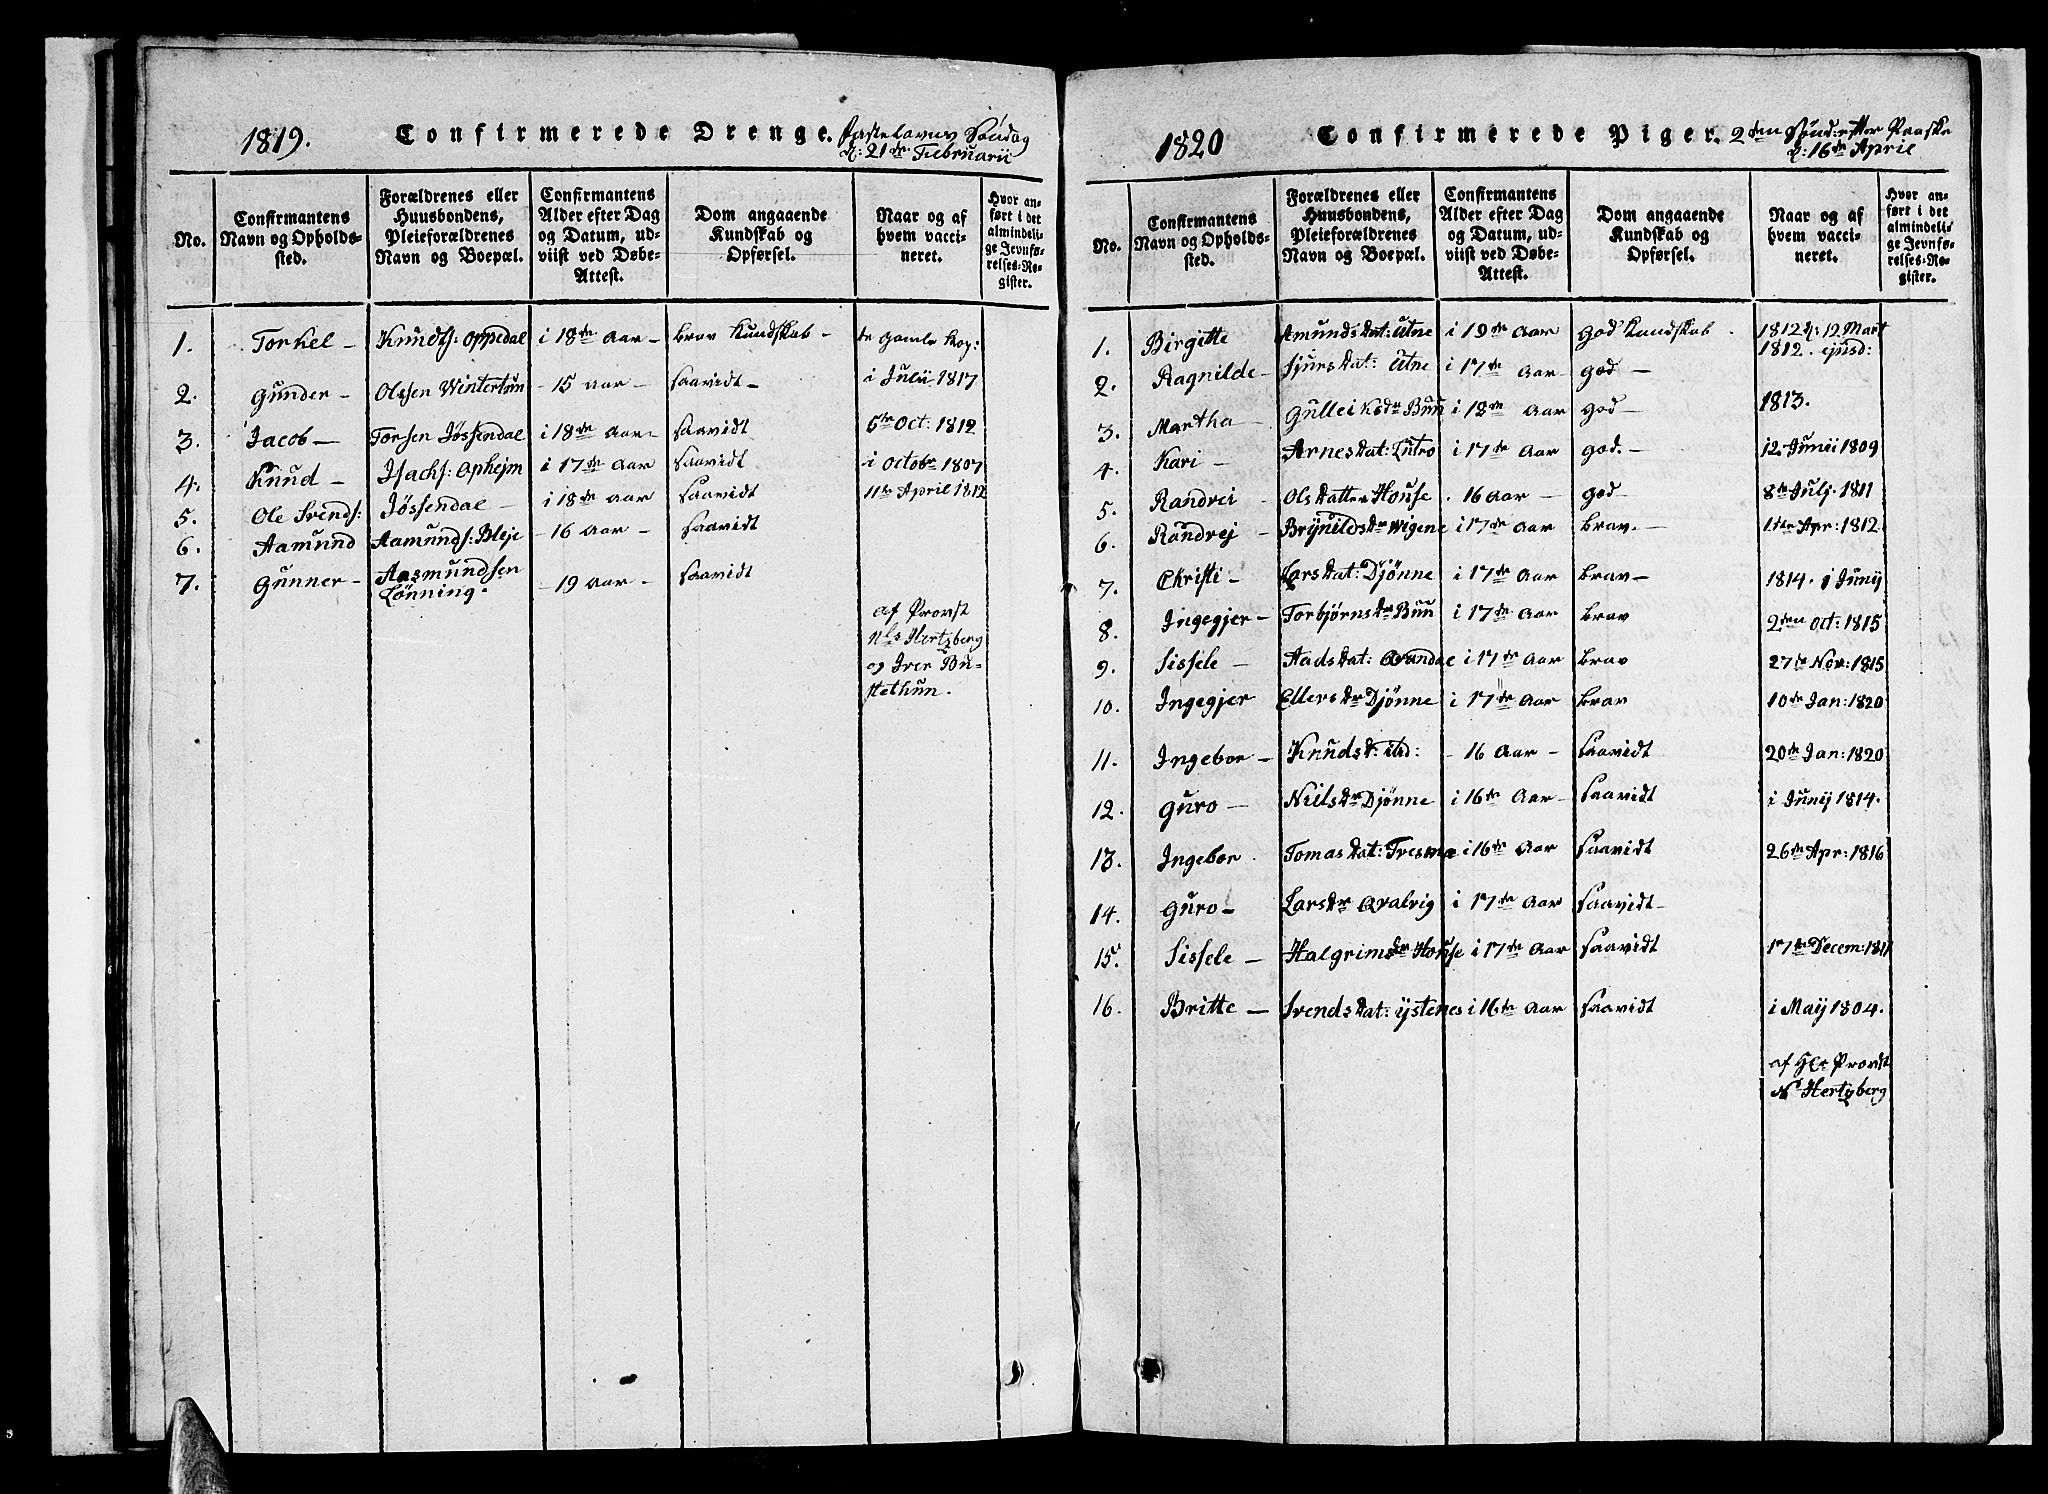 1819. Confirmerede Drenge. Fastelavns Søndag
d: 21de Februarii
No.
Confirmantens Navn og Opholdssted.
Forældrenes eller Huusbondens, Pleieforældrenes Navn og Boepæl.
Confirmantens Alder efter Dag og Datum, udviist ved Døbe-Attest.
Dom angaaende Kundskab og Opførsel.
Naar og af hvem vaccineret.
Hvor anført i det almindelige Jevnførelses-Register.
1. Torkel – Knudts: Oppedal i 18de Aar – brav Kundskab – de gamle Kop:
2. Gunder – Olssen Wintertun – 15 Aar – saavidt – i Julii 1817
3. Jacob – Torsen Jøssendal i 18de Aar – saavidt 6te Oct: 1812
4. Knud – Isachs: Ophejm i 17de Aar saavidt i Octobr 1807
5. Ole Svends: Jøssendal – i 18de Aar saavidt 11te April 1812
6. Aamund Aamunds: Bleje – 16 Aar – saavidt
7. Gunner – Aasmundsen – 19 Aar – saavidt
Lønning.
af Provst
Nls Hertzberg
og Iver Bu-
stethun.
1820 Confirmerede Piger. 2den Sønd: efter Paaske
d: 16de April
No.
Confirmantens Navn og Opholdssted.
Forældrenes eller Huusbondens, Pleieforældrenes Navn og Boepæl.
Confirmantens Alder efter Dag og Datum, udviist ved Døbe-Attest.
Dom angaaende Kundskab og Opførsel.
Naar og af hvem vaccineret.
Hvor anført i det almindelige Jevnførelses-Register.
1. Birgitte Amunds dat: Utne i 19de Aar god Kundskab. 1812 d: 12 Mart
2. Ragnilde – Sjurs dat: Utne i 17de Aar god – 1812. ejusd:
3. Martha – Gulleiks dr Buu i 18de Aar god – 1813.
4. Kari – Arnes dat: Lutro i 17de Aar god. – 12 Junii 1809
5. Randvei – Ols datter House . 16 Aar – god 8de Julj. 1811
6. Randvej – Brynilds dr Wigene i 17de Aar brav. – 11te Apr: 1812.
7. Christi – Lars dat: Djønne i 17de Aar brav – 1814. i Junij
8. Ingegjer – Torbjørns dr Buu i 17de Aar brav 2den Oct: 1815
9. Sissele – Aads dat: i 17de Aar brav 27de Nov: 1815
10. Ingegjer Ellers dr Djønne i 17de Aar brav 10de Jan: 1820
11. Ingebor – Knuds d: ibd: – 16 Aar – saavidt 20de Jan: 1820
12. Guro – Niels dr Djønne i 16de Aar – saavidt i Junij 1814.
13. Ingebor. Tomas dat: i 16de Aar saavidt 26de Apr: 1816
14. Guro – Lars dr Qvalvig i 17de Aar saavidt –
15. Sissele – Halgrims dr House i 17de Aar saavidt 17de Decem: 1811
16. Britte – Svends dat: Ystenes i 16de Aar saavidt i Maij 1804.
af Hr Provst
N Hertzberg